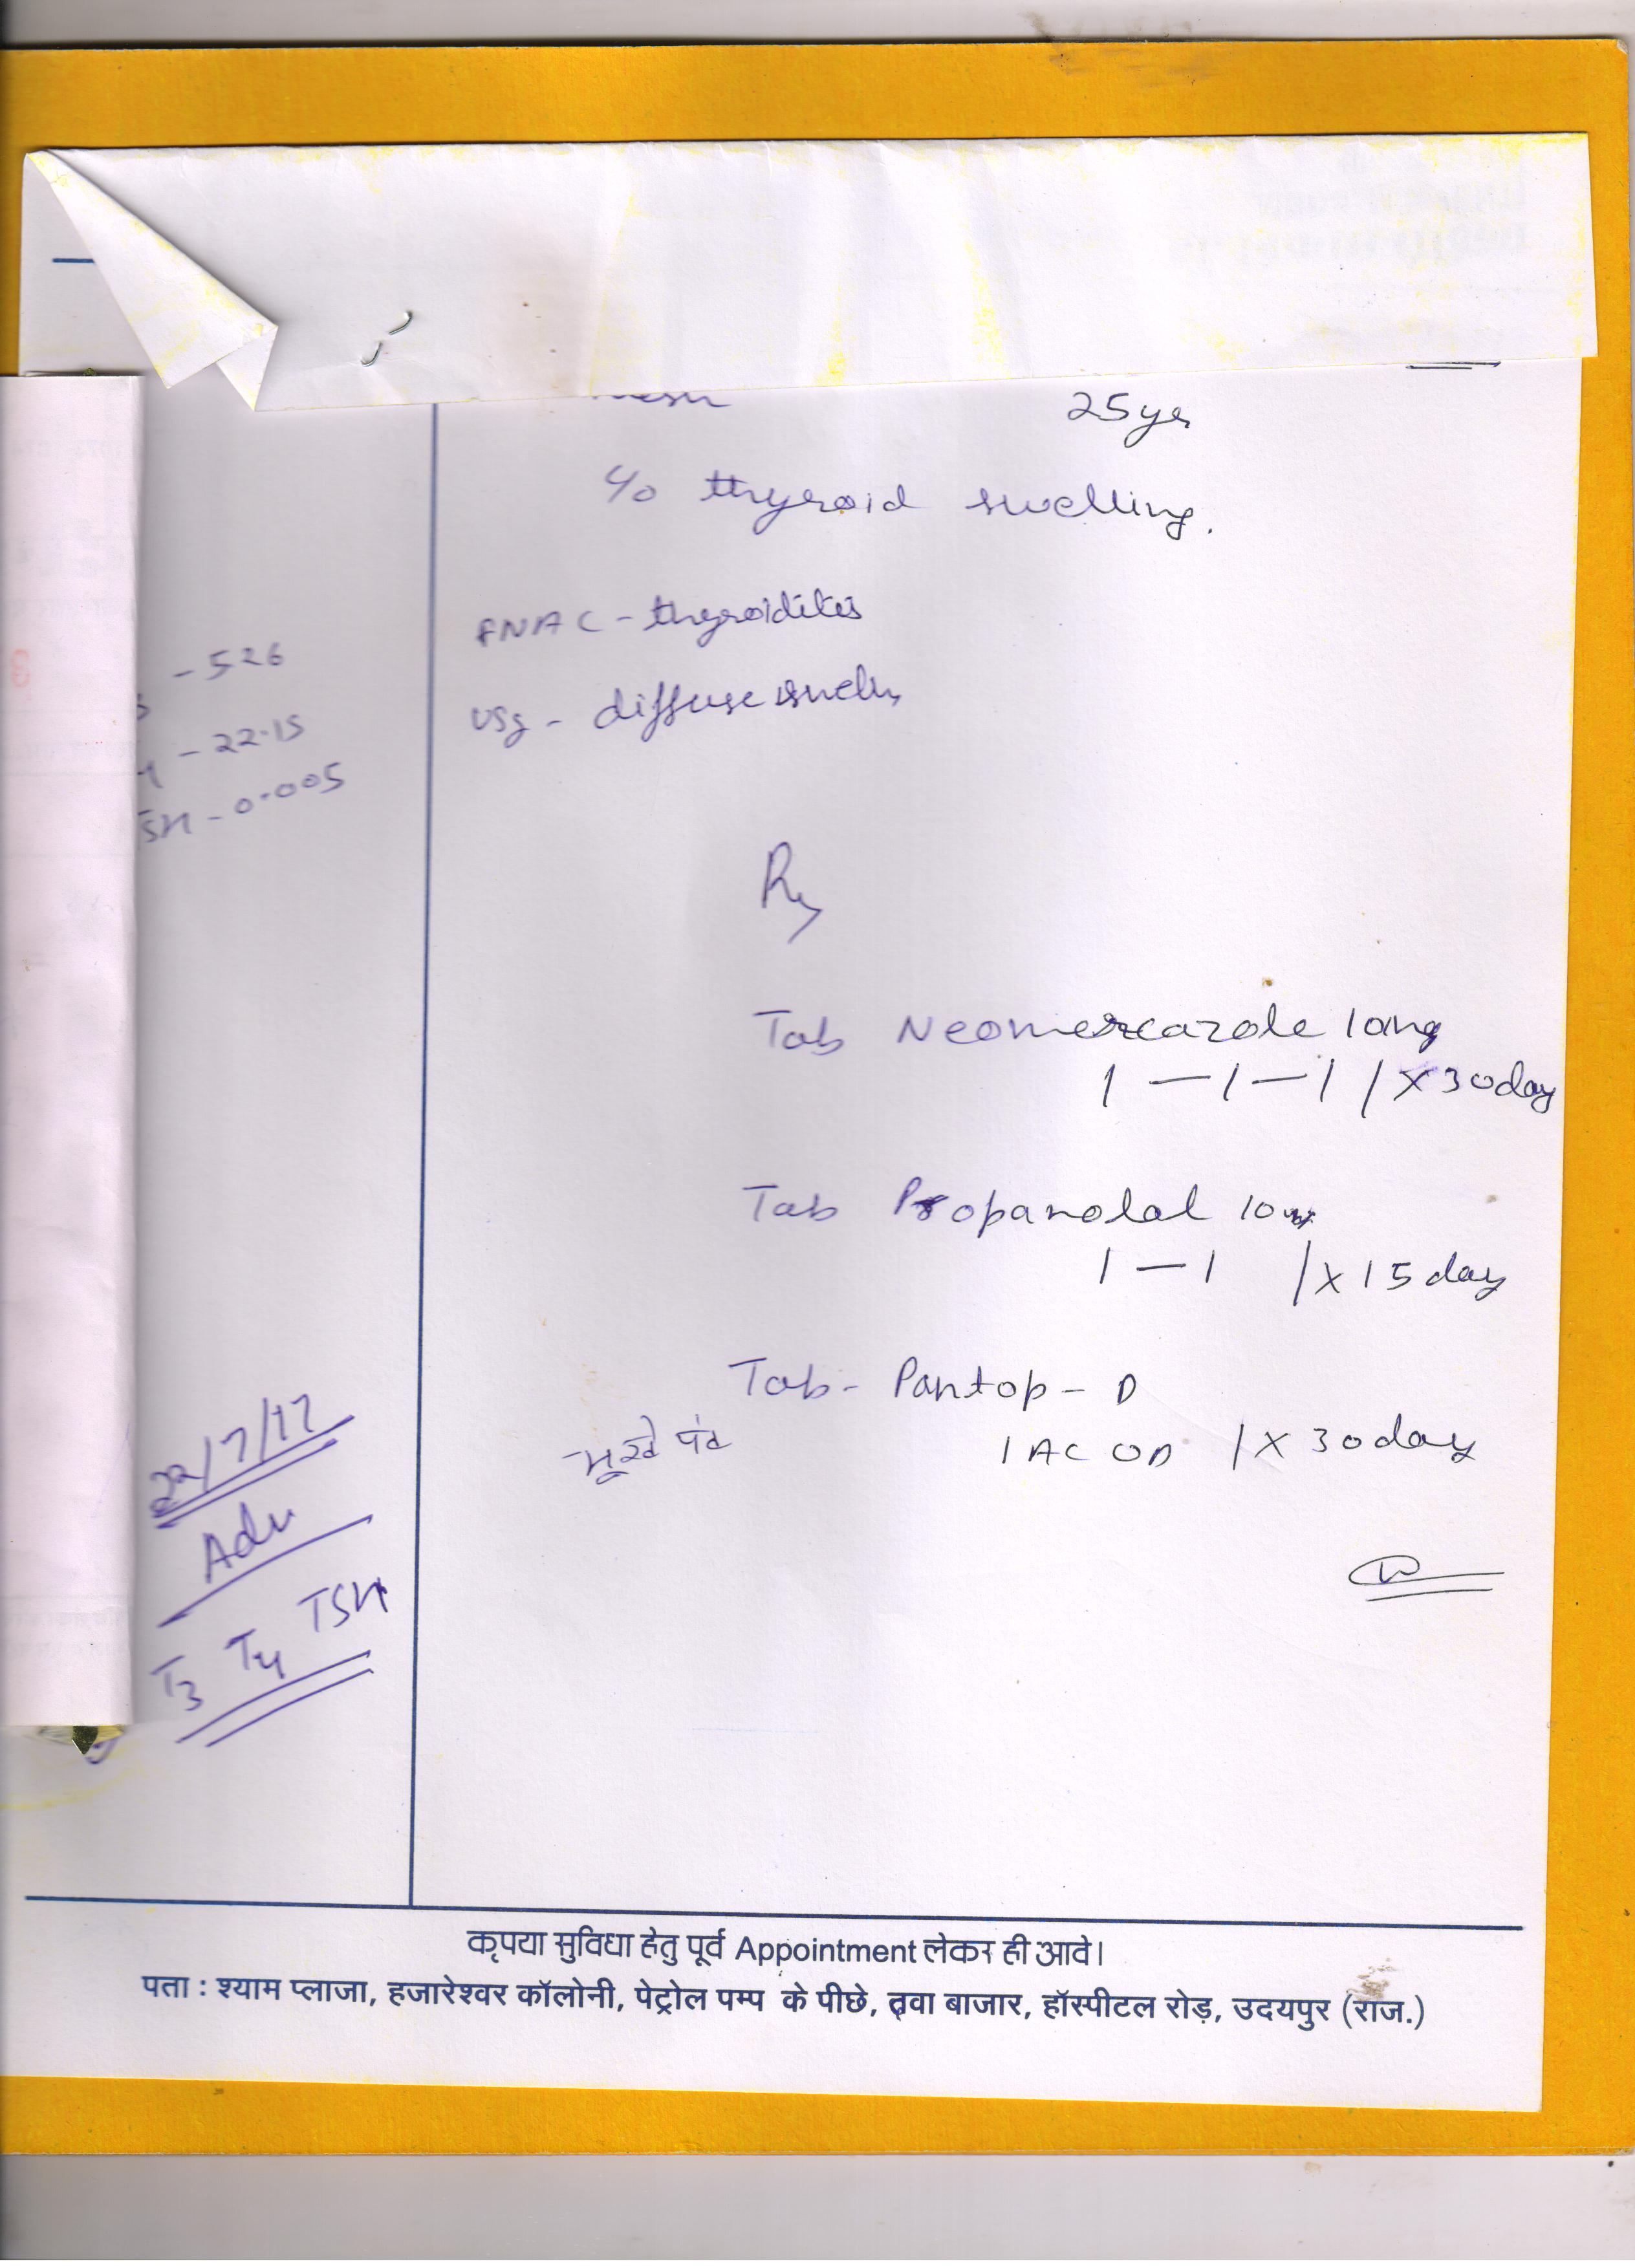 25yrs
c/o thyroid swelling.
FNAC - thyroiditis
USg - diffuse
- 526
- 22.15
TSH - 0.005
Rx
Tab Neomercazole 10mg
1 — 1 — 1 / x 30 day
Tab Propanolal 10mg
1 — 1 / x 15 day
Tab - Pantop - D
भूखे पेट 1 AC OD / x 30 day
22/7/17
Adv
T3 T4 TSH
कृपया सुविधा हेतु पूर्व Appointment लेकर ही आवे।
पता : श्याम प्लाजा, हजारेश्वर कॉलोनी, पेट्रोल पम्प के पीछे, तवा बाजार, हॉस्पीटल रोड़, उदयपुर (राज.)